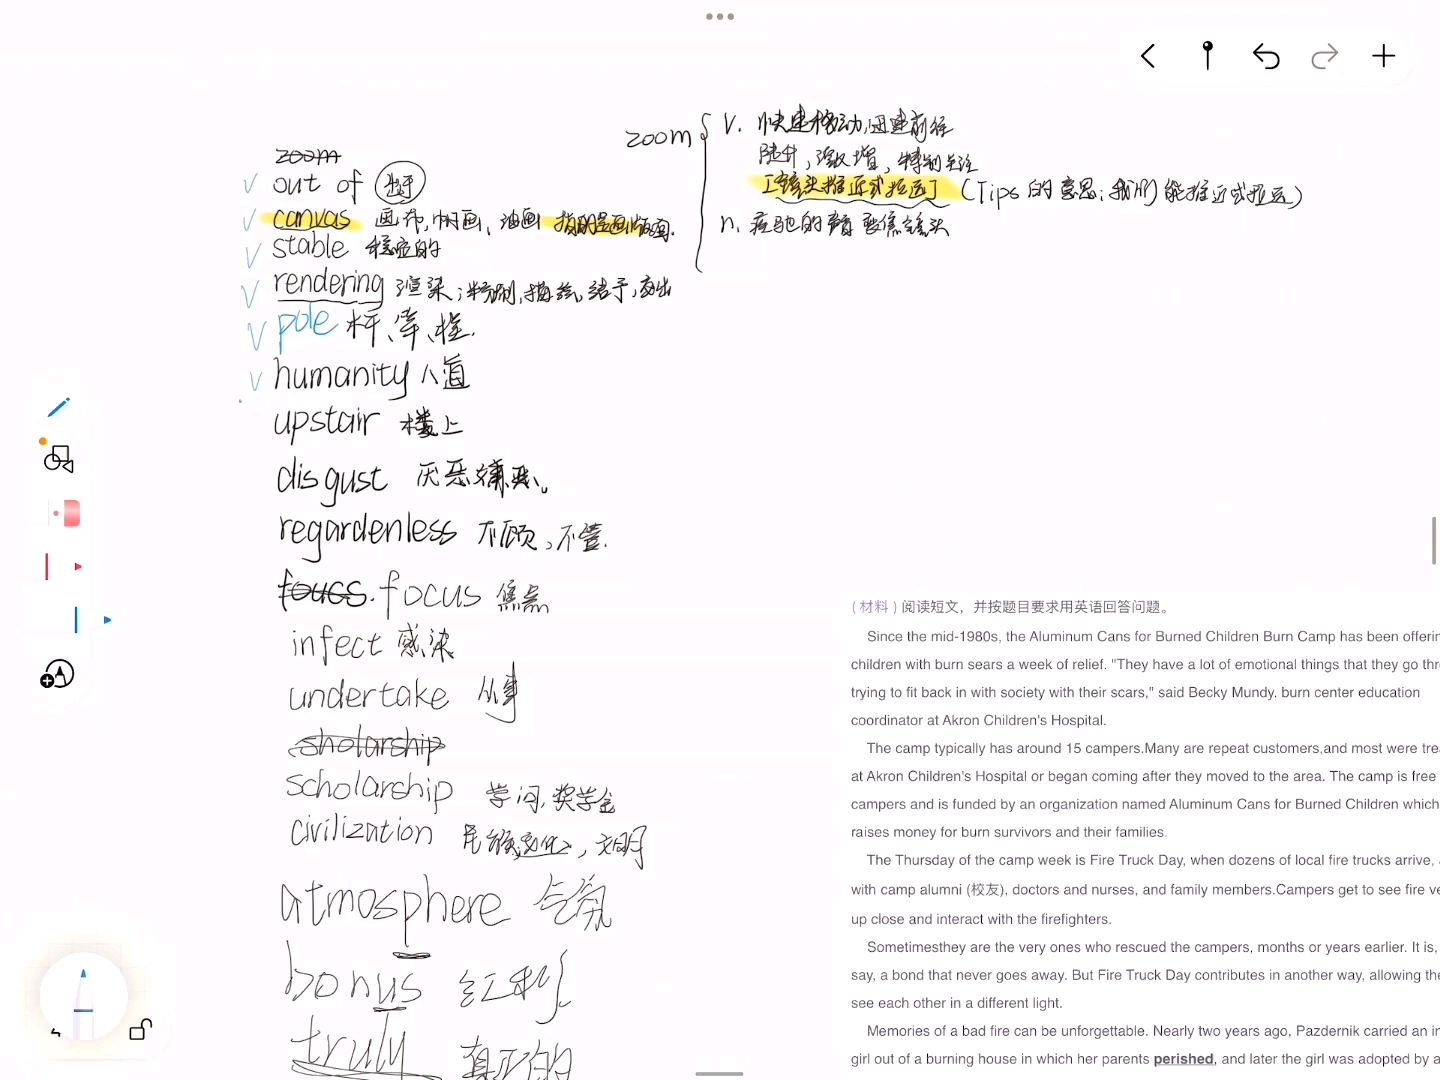 zoom
out of 出于
canvas 画布,帆画、油画 指的是画版面.
stable 稳定的
rendering 渲染;粉刷,描绘,给予,交出
pole 杆、竿、棍.
humanity 人道
upstair 楼上
disgust 厌恶嫌恶、
regardenless 不顾,不管.
foucs. focus 焦点
infect 感染
undertake 从事
sholarship
scholarship 学问,奖学金
civilization 民族文化,文明
atmosphere 气氛
bonus 红利
truly 真正的
zoom { v. 快速移动,迅速前往
陡升,激增,特别关注
[镜头推近或拉远] (Tips 的意思:我们能推近或拉远)
n. 疾驰的声音 变焦镜头
(材料) 阅读短文，并按题目要求用英语回答问题。
Since the mid-1980s, the Aluminum Cans for Burned Children Burn Camp has been offerin
children with burn sears a week of relief. "They have a lot of emotional things that they go thr
trying to fit back in with society with their scars," said Becky Mundy. burn center education
coordinator at Akron Children's Hospital.
The camp typically has around 15 campers.Many are repeat customers,and most were trea
at Akron Children's Hospital or began coming after they moved to the area. The camp is free
campers and is funded by an organization named Aluminum Cans for Burned Children which
raises money for burn survivors and their families.
The Thursday of the camp week is Fire Truck Day, when dozens of local fire trucks arrive,
with camp alumni (校友), doctors and nurses, and family members.Campers get to see fire ve
up close and interact with the firefighters.
Sometimesthey are the very ones who rescued the campers, months or years earlier. It is,
say, a bond that never goes away. But Fire Truck Day contributes in another way, allowing the
see each other in a different light.
Memories of a bad fire can be unforgettable. Nearly two years ago, Pazdernik carried an in
girl out of a burning house in which her parents perished, and later the girl was adopted by a